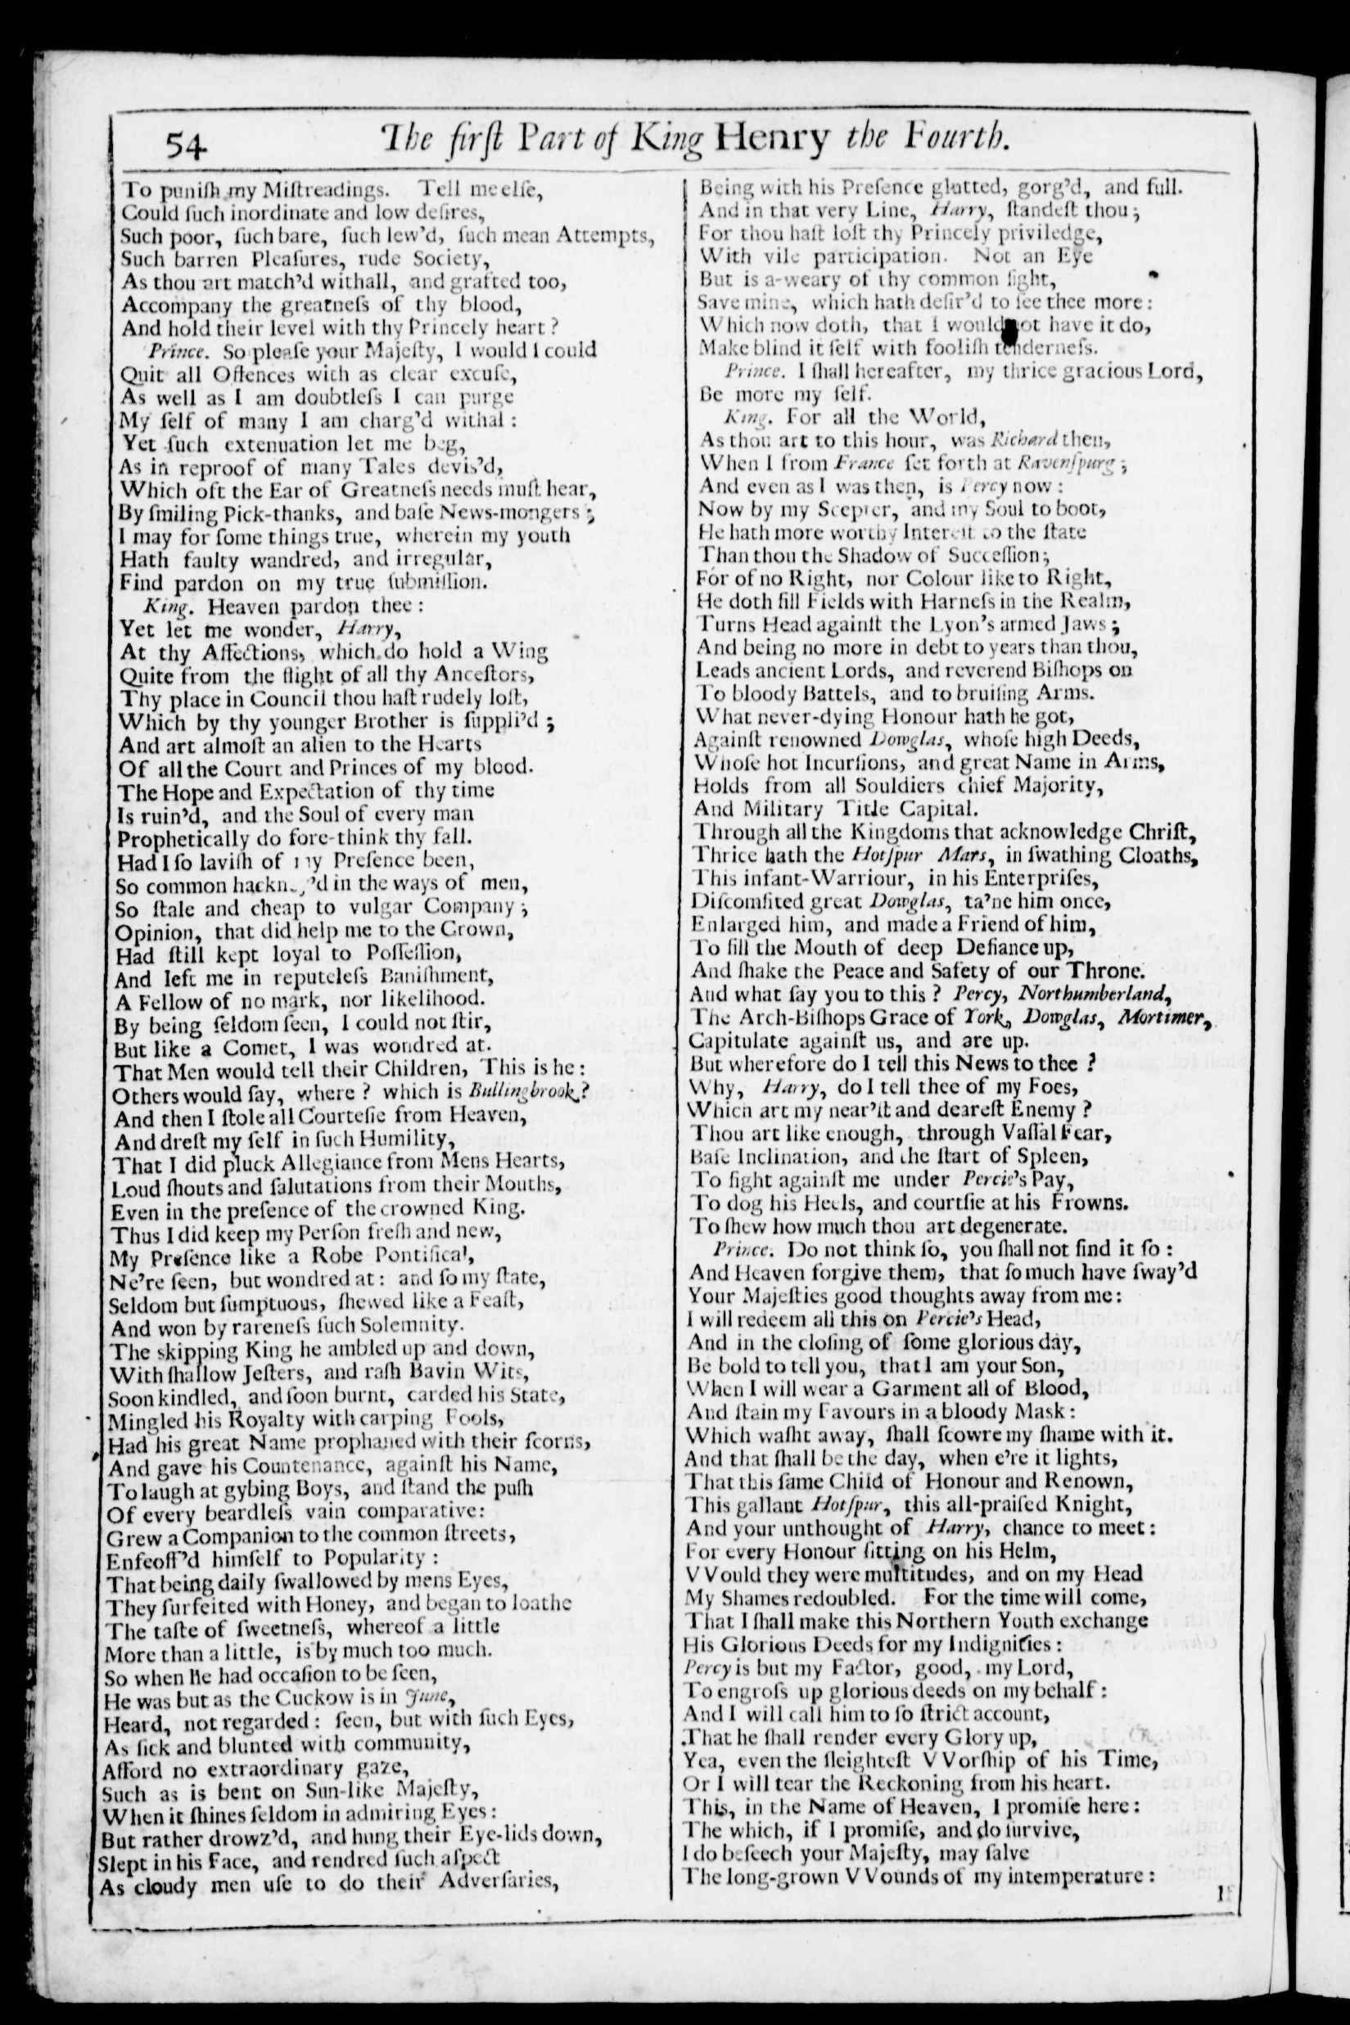 54
The firſt Part of King Henry the Fourth.
To puniſh my Miſtreadings. Tell me elſe,
Could ſuch inordinate and low deſires,
Such poor, ſuch bare, ſuch lew'd, ſuch mean Attempts,
Such barren Pleaſures, rude Society,
As thou art match'd withall, and grafted too,
Accompany the greatneſs of thy blood,
And hold their level with thy Princely heart?
Prince. So pleaſe your Majeſty, I would I could
Quit all Offences with as clear excuſe,
As well as I am doubtleſs I can purge
My ſelf of many I am charg'd withal:
Yet ſuch extenuation let me beg,
As in reproof of many Tales devis'd,
Which oft the Ear of Greatneſs needs muſt hear,
By ſmiling Pick-thanks, and baſe News-mongers;
I may for ſome things true, wherein my youth
Hath faulty wandred, and irregular,
Find pardon on my true ſubmiſſion.
King. Heaven pardon thee:
Yet let me wonder, Harry,
At thy Affections, which do hold a Wing
Quite from the flight of all thy Anceſtors,
Thy place in Council thou haſt rudely loſt,
Which by thy younger Brother is ſuppli'd;
And art almoſt an alien to the Hearts
Of all the Court and Princes of my blood.
The Hope and Expectation of thy time
Is ruin'd, and the Soul of every man
Prophetically do fore-think thy fall.
Had I ſo laviſh of my Preſence been,
So common hackney'd in the ways of men,
So ſtale and cheap to vulgar Company;
Opinion, that did help me to the Crown,
Had ſtill kept loyal to Poſſeſſion,
And left me in reputeleſs Baniſhment,
A Fellow of no mark, nor likelihood.
By being ſeldom ſeen, I could not ſtir,
But like a Comet, I was wondred at.
That Men would tell their Children, This is he:
Others would ſay, where? which is Bullingbrook?
And then I ſtole all Courteſie from Heaven,
And dreſt my ſelf in ſuch Humility,
That I did pluck Allegiance from Mens Hearts,
Loud ſhouts and ſalutations from their Mouths,
Even in the preſence of the crowned King.
Thus I did keep my Perſon freſh and new,
My Preſence like a Robe Pontifical,
Ne're ſeen, but wondred at: and ſo my ſtate,
Seldom but ſumptuous, ſhewed like a Feaſt,
And won by rareneſs ſuch Solemnity.
The skipping King he ambled up and down,
With ſhallow Jeſters, and raſh Bavin Wits,
Soon kindled, and ſoon burnt, carded his State,
Mingled his Royalty with carping Fools,
Had his great Name prophaned with their ſcorns,
And gave his Countenance, againſt his Name,
To laugh at gybing Boys, and ſtand the puſh
Of every beardleſs vain comparative:
Grew a Companion to the common ſtreets,
Enfeoff'd himſelf to Popularity:
That being daily ſwallowed by mens Eyes,
They ſurfeited with Honey, and began to loathe
The taſte of ſweetneſs, whereof a little
More than a little, is by much too much.
So when he had occaſion to be ſeen,
He was but as the Cuckow is in June,
Heard, not regarded: ſeen, but with ſuch Eyes,
As ſick and blunted with community,
Afford no extraordinary gaze,
Such as is bent on Sun-like Majeſty,
When it ſhines ſeldom in admiring Eyes:
But rather drowz'd, and hung their Eye-lids down,
Slept in his Face, and rendred ſuch aſpect
As cloudy men uſe to do their Adverſaries,
Being with his Preſence glutted, gorg'd, and full.
And in that very Line, Harry, ſtandeſt thou;
For thou haſt loſt thy Princely priviledge,
With vile participation. Not an Eye
But is a-weary of thy common ſight,
Save mine, which hath deſir'd to ſee thee more:
Which now doth, that I would not have it do,
Make blind it ſelf with fooliſh tenderneſs.
Prince. I ſhall hereafter, my thrice gracious Lord,
Be more my ſelf.
King. For all the World,
As thou art to this hour, was Richard then,
When I from France ſet forth at Ravenſpurg;
And even as I was then, is Percy now:
Now by my Scepter, and my Soul to boot,
He hath more worthy Intereſt to the ſtate
Than thou the Shadow of Succeſſion;
For of no Right, nor Colour like to Right,
He doth fill Fields with Harneſs in the Realm,
Turns Head againſt the Lyon's armed Jaws;
And being no more in debt to years than thou,
Leads ancient Lords, and reverend Biſhops on
To bloody Battels, and to bruiſing Arms.
What never-dying Honour hath he got,
Againſt renowned Dowglas, whoſe high Deeds,
Whoſe hot Incurſions, and great Name in Arms,
Holds from all Souldiers chief Majority,
And Military Title Capital.
Through all the Kingdoms that acknowledge Chriſt,
Thrice hath the Hotſpur Mars, in ſwathing Cloaths,
This infant-Warriour, in his Enterpriſes,
Diſcomfited great Dowglas, ta'ne him once,
Enlarged him, and made a Friend of him,
To fill the Mouth of deep Defiance up,
And ſhake the Peace and Safety of our Throne.
And what ſay you to this? Percy, Northumberland,
The Arch-Biſhops Grace of York, Dowglas, Mortimer,
Capitulate againſt us, and are up.
But wherefore do I tell this News to thee?
Why, Harry, do I tell thee of my Foes,
Which art my near'ſt and deareſt Enemy?
Thou art like enough, through Vaſſal Fear,
Baſe Inclination, and the ſtart of Spleen,
To fight againſt me under Percie's Pay,
To dog his Heels, and courtſie at his Frowns.
To ſhew how much thou art degenerate.
Prince. Do not think ſo, you ſhall not find it ſo:
And Heaven forgive them, that ſo much have ſway'd
Your Majeſties good thoughts away from me:
I will redeem all this on Percie's Head,
And in the cloſing of ſome glorious day,
Be bold to tell you, that I am your Son,
When I will wear a Garment all of Blood,
And ſtain my Favours in a bloody Mask:
Which waſht away, ſhall ſcowre my ſhame with it.
And that ſhall be the day, when e're it lights,
That this ſame Child of Honour and Renown,
This gallant Hotſpur, this all-praiſed Knight,
And your unthought of Harry, chance to meet:
For every Honour ſitting on his Helm,
VVould they were multitudes, and on my Head
My Shames redoubled. For the time will come,
That I ſhall make this Northern Youth exchange
His Glorious Deeds for my Indignities:
Percy is but my Factor, good, my Lord,
To engroſs up glorious deeds on my behalf:
And I will call him to ſo ſtrict account,
That he ſhall render every Glory up,
Yea, even the ſleighteſt VVorſhip of his Time,
Or I will tear the Reckoning from his heart.
This, in the Name of Heaven, I promiſe here:
The which, if I promiſe, and do ſurvive,
I do beſeech your Majeſty, may ſalve
The long-grown VVounds of my intemperature:
If